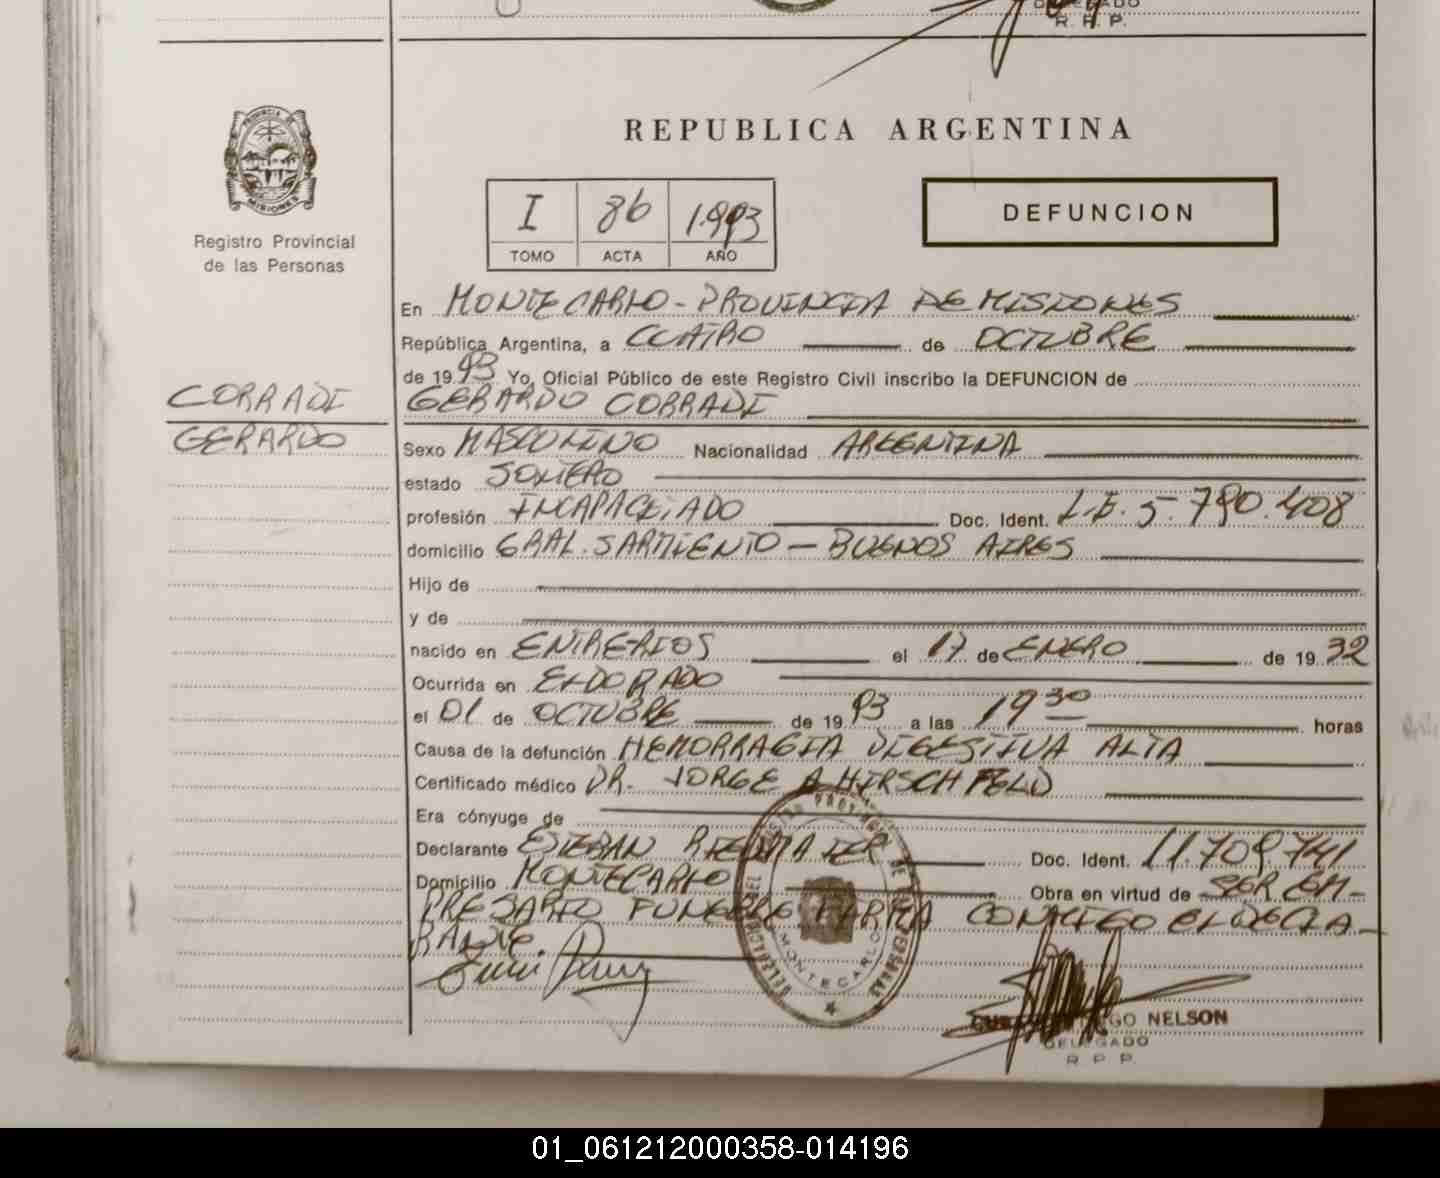 DELEGADO
R. R. P.
PROVINCIA DE
MISIONES
Registro Provincial
de las Personas
REPUBLICA ARGENTINA
I 86 1.993
TOMO ACTA AÑO
DEFUNCION
En MONTECARLO - PROVINCIA DE MISIONES
República Argentina, a CUATRO de OCTUBRE
de 1993 Yo, Oficial Público de este Registro Civil inscribo la DEFUNCION de
CORRADI GERARDO CORRADI
GERARDO
Sexo MASCULINO Nacionalidad ARGENTINA
estado SOLTERO
profesión INCAPACITADO Doc. Ident. L.E. 5.790.408
domicilio GRAL. SARMIENTO - BUENOS AIRES
Hijo de
y de
nacido en ENTRE RIOS el 17 de ENERO de 1932
Ocurrida en ELDORADO
el 01 de OCTUBRE de 1993 a las 19 30 horas
Causa de la defunción HEMORRAGIA DIGESTIVA ALTA
Certificado médico DR. JORGE A HIRSCHFELD
Era cónyuge de
Declarante ESTEBAN Doc. Ident. 11.709.741
Domicilio MONTECARLO Obra en virtud de SER EM-
PRESARIO FUNEBRE FIRMA CONMIGO EL DECLA-
RANTE.
MONTECARLO
NELSON
DELEGADO
R. P. P.
01_061212000358-014196